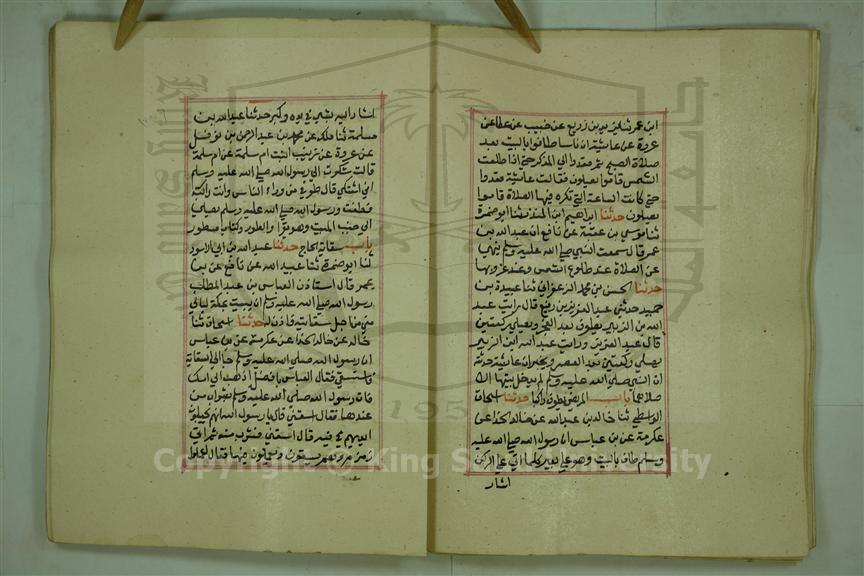 ابن عمر ثنا يزيد بن زريع عن حبيب عن عطا عن
عروة عن عائشة ان ناسا طافوا بالبيت بعد
صلاة الصبح ثم قعدوا الى المذكر حتى اذا طلعت
الشمس قاموا يصلون فقالت عائشة قعدوا
حتى كانت الساعة التي تكره فيها الصلاة قاموا
يصلون حدثنا ابراهيم ابن المنذر ثنا ابو ضمرة
ثنا موسى بن عقبة عن نافع ان عبد الله بن
عمر قال سمعت النبي صلى الله عليه وسلم ينهى
عن الصلاة عند طلوع الشمس وعند غروبها
حدثنا الحسن بن محمد الزعفراني ثنا عبيدة بن
حميد حدثني عبد العزيز بن رفيع قال رايت عبد
الله بن الزبير يطوف بعد الفجر ويصلي ركعتين
قال عبد العزيز ورايت عبد الله ابن الزبير
يصلي ركعتين بعد العصر ويخبر ان عائشة حدثته
ان النبي صلى الله عليه وسلم لم يدخل بيتها الا
صلاهما باب المريض يطوف راكبا حدثنا اسحاق
الواسطي ثنا خالد بن عبد الله عن خالد الحذا عن
عكرمة عن بن عباس ان رسول الله صلى الله عليه
وسلم طاف بالبيت وهو على بعير كلما اتى على الركن
اشار
اشار اليه بشي في يده وكبر حدثنا عبد الله بن
مسلمة ثنا ملك عن محمد بن عبد الرحمن بن نوفل
عن عروة عن زينب ابنت ام سلمة عن ام سلمة
قالت شكوت الى رسول الله صلى الله عليه وسلم
اني اشتكي قال طوفي من وراء الناس وانت راكبة
فطفت ورسول الله صلى الله عليه وسلم يصلي
الى جنب البيت وهو يقرا والطور وكتاب مسطور
باب سقاية الحاج حدثنا عبد الله بن ابي الاسود
ثنا ابو ضمرة ثنا عبيد الله عن نافع عن بن
عمر قال استاذن العباس بن عبد المطلب
رسول الله صلى الله عليه وسلم ان يبيت بمكة ليالي
منى من اجل سقايته فاذن له حدثنا اسحاق ثنا
خالد عن خالد الحذا عن عكرمة عن بن عباس
ان رسول الله صلى الله عليه وسلم جا الى السقاية
فاستسقى فقال العباس يا فضل اذهب الى امك
فات رسول الله صلى الله عليه وسلم بشراب من
عندها فقال اسقني قال يا رسول الله انهم يجعلون
ايديهم فيه قال اسقني فشرب منه ثم اتى
زمزم وهم يسقون ويعملون فيها فقال اعملوا
Copyright © King Saud University
1957